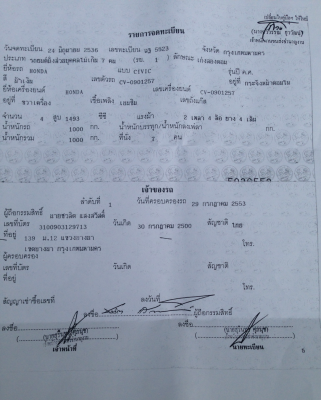 รายการจดทะเบียน
วันจดทะเบียน 24 มิถุนายน 2536 เลขทะเบียน 5823 จังหวัด กรุงเทพมหานคร
ประเภท รถยนต์นั่งส่วนบุคคลไม่เกิน 7 คน (รย. 1) ลักษณะ เก๋งสองตอน
ยี่ห้อรถ HONDA แบบ CIVIC รุ่นปี ค.ศ.
สี เลขตัวรถ CV-0901257 อยู่ที่
ยี่ห้อเครื่องยนต์ HONDA เลขเครื่องยนต์ CV-0901257
อยู่ที่ ขวาเครื่อง เชื้อเพลิง เบนซิน เลขถังแก๊ส
จำนวน 4 สูบ 1493 ซีซี แรงม้า 2 เพลา 4 ล้อ ยาง 4 เส้น
น้ำหนักรถ 1000 กก. น้ำหนักบรรทุก/น้ำหนักลงเพลา กก.
น้ำหนักรวม 1000 กก. ที่นั่ง 7 คน
เจ้าของรถ
ลำดับที่ 1 วันที่ครอบครองรถ 29 กรกฎาคม 2553
ผู้ถือกรรมสิทธิ์
เลขที่บัตร 3100903129713 วันเกิด 30 กรกฎาคม 2500 สัญชาติ ไทย
ที่อยู่ 139 ม.12 แขวงบางนา โทร.
เขตบางนา กรุงเทพมหานคร
ผู้ครอบครอง
เลขที่บัตร วันเกิด สัญชาติ
ที่อยู่ โทร.
สัญญาเช่าซื้อเลขที่ ลงวันที่
ลงชื่อ ผู้ถือกรรมสิทธิ์
ลงชื่อ ลงชื่อ
เจ้าหน้าที่ นายทะเบียน
6